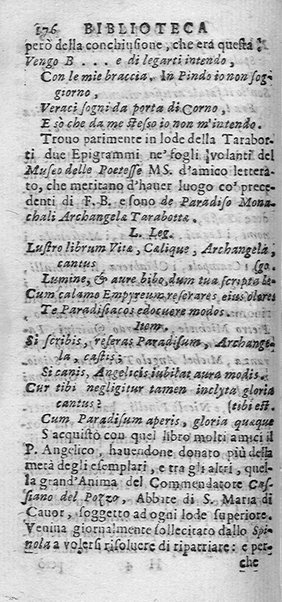 176 BIBLIOTECA
però della conchiusione, che era questa:
Vengo B . . . e di legarti intendo,
Con le mie braccia. In Pindo io non sog-
giorno,
Veraci sogni da porta di Corno,
E sò che da me stesso io non m'intendo.
Trovo parimente in lode della Tarabot-
ti due Epigrammi ne' fogli volanti del
Museo delle Poetesse MS. d'amico lettera-
to, che meritano d'haver luogo co' prece-
denti di F. B. e sono de Paradiso Mona-
chali Archangela Tarabotta.
L. Leg.
Lustro librum Vitæ, Calique, Archangela,
cantus [go.
Lumine, & aure bibo, dum tua scripta le-
Cum calamo Empyreum reserares eius olores
Te Paradisiacos edocuere modos.
Item.
Si scribis, reseras Paradisum, Archange-
la, castis;
Si canis, Angelicis iubilat aura modis.
Cur tibi negligitur tamen inclyta gloria
cantus? [tibi est.
Cum Paradisum aperis, gloria quaque
S'acquistò con quel libro molti amici il
P. Angelico, havendone donato più della
metà degli esemplari, e tra gli altri, quel-
la grand'Anima del Commendatore Cas-
siano del Pozzo, Abbate di S. Maria di
Cavor, soggetto ad ogni lode superiore.
Veniva giornalmente sollecitato dallo Spi-
nola a volersi risolvere di ripatriare: e per-
che